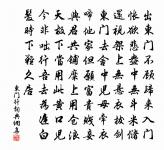 出東門不顧歸來入門
悵欲悲盎中無斗米儲
還視架上無懸衣拔劍
東門去舍中兒母牽衣
啼他家但願富貴賤妾
與君共餔糜上用倉浪
天故下當用此黃口兒
今非咄行吾去為遲白
髮時下難久居
東門行